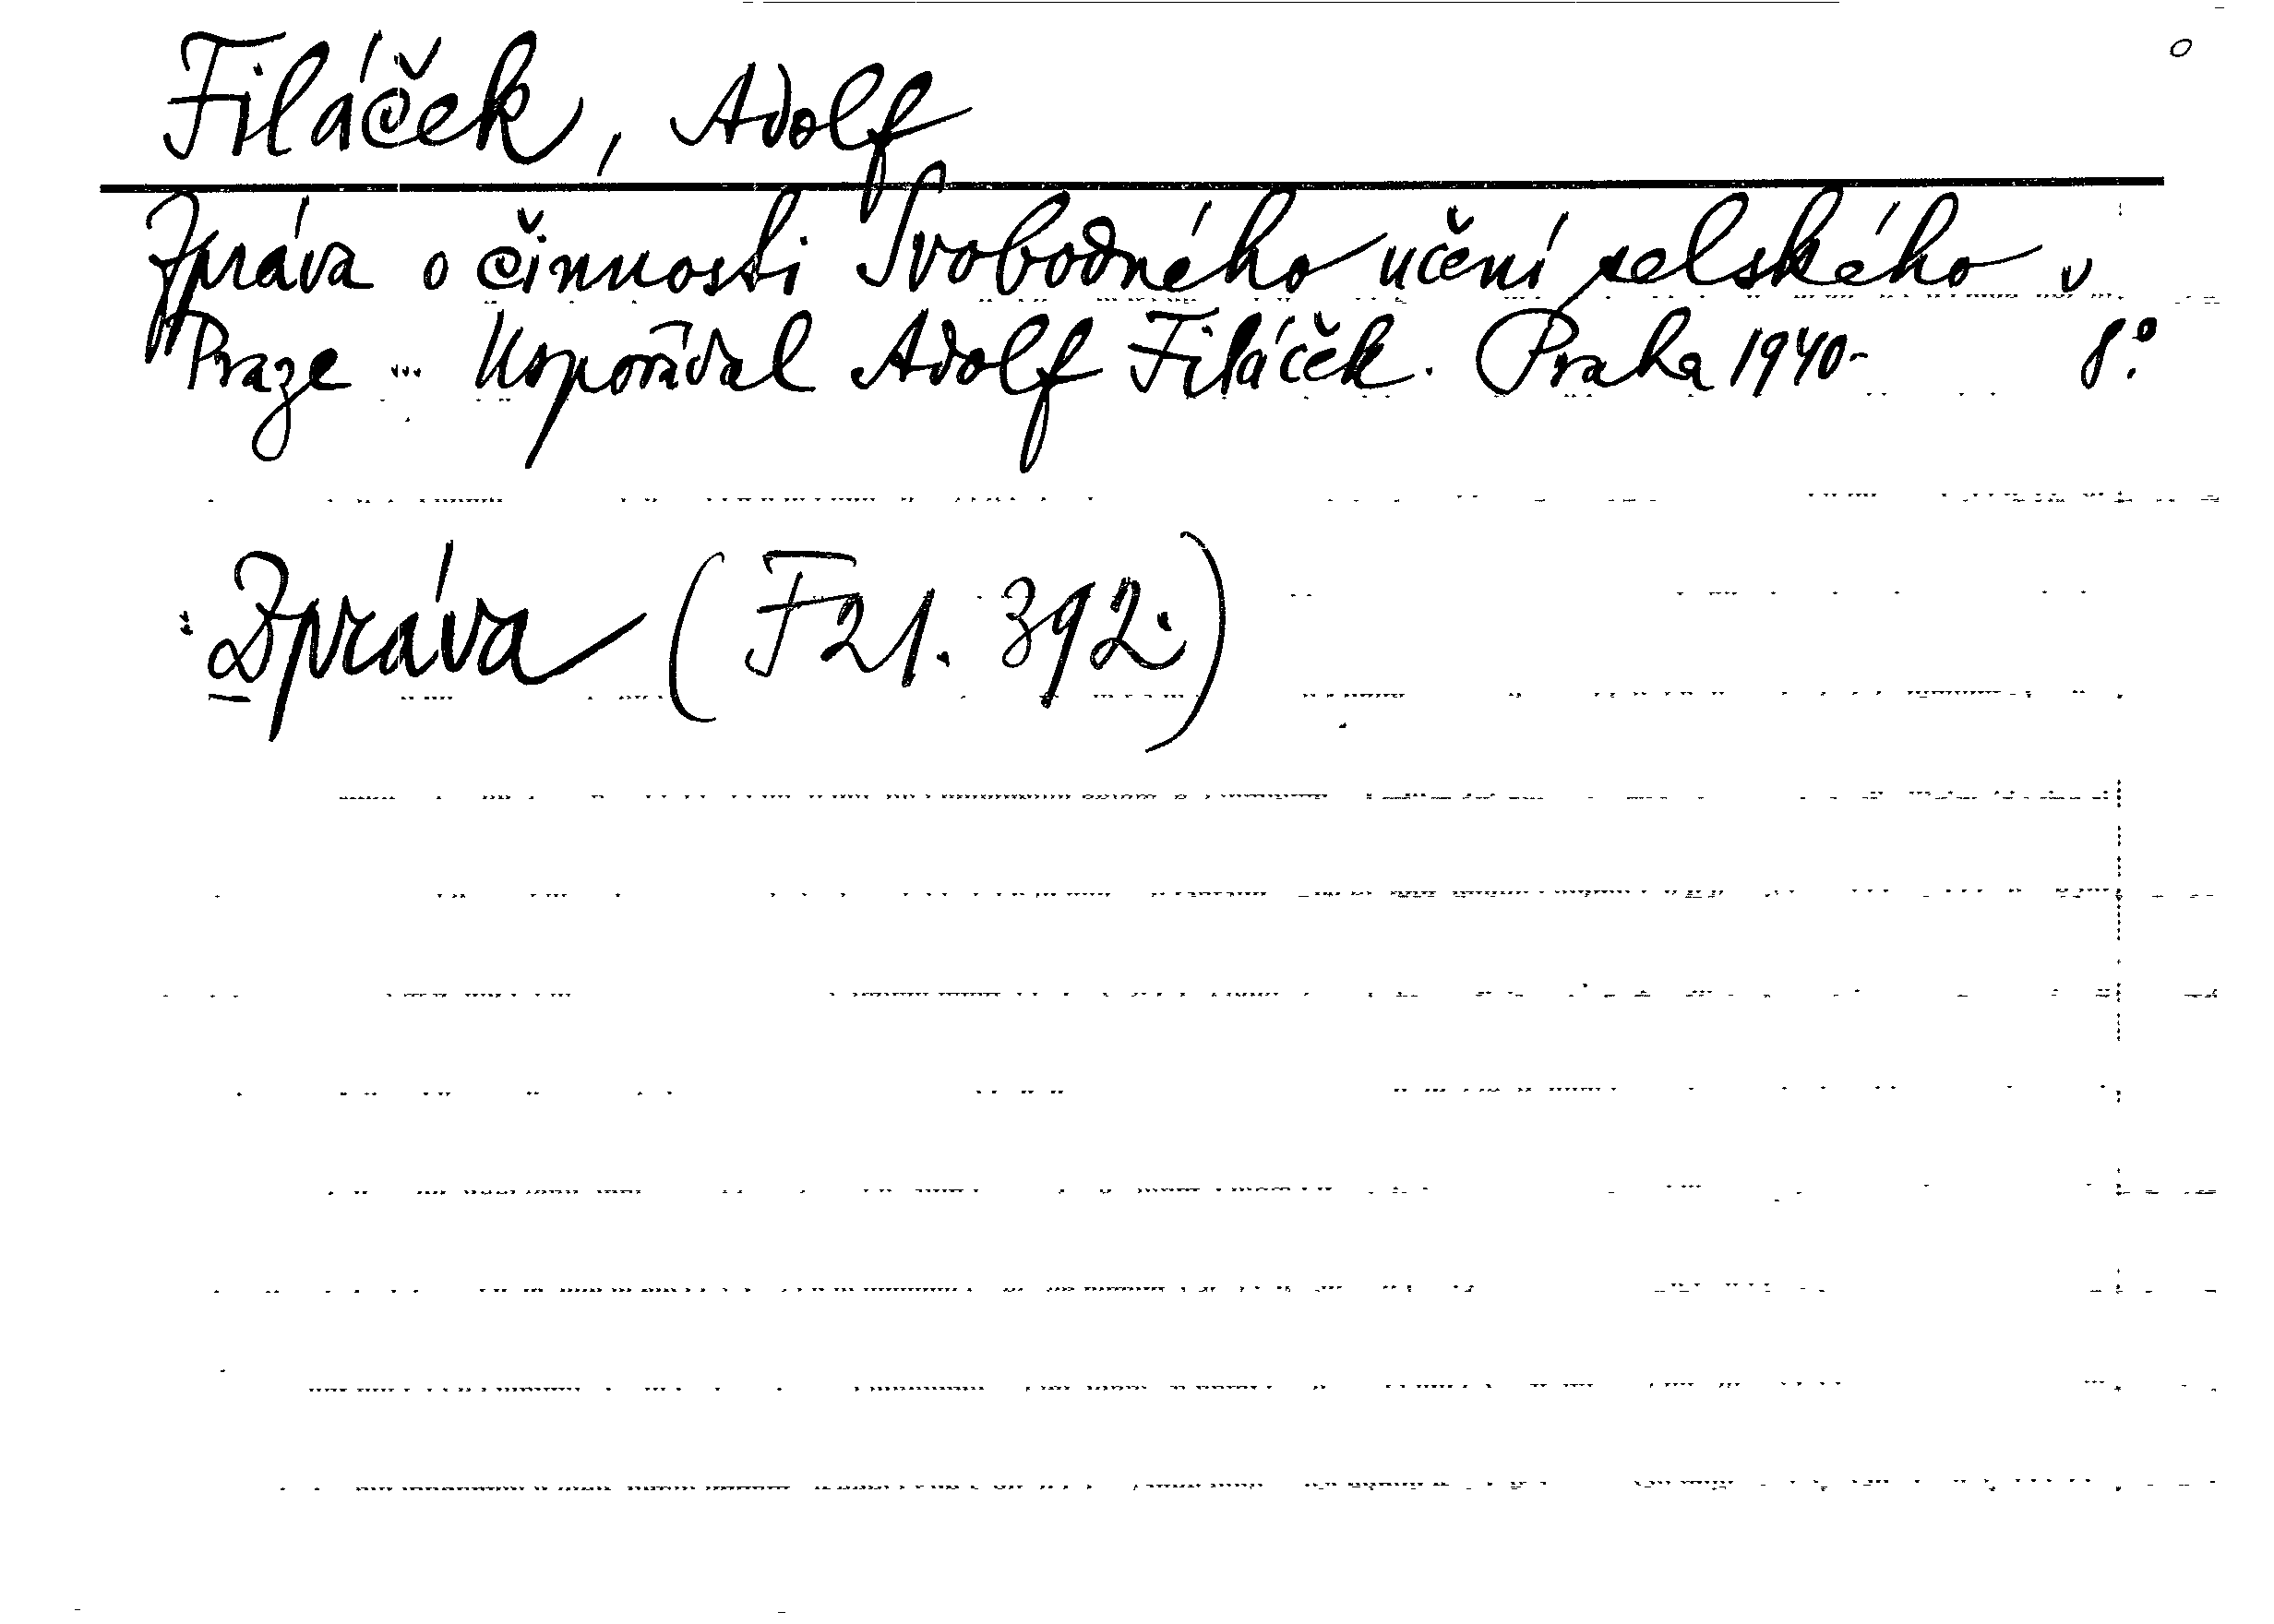 Filáček, Adolf
Zpráva o činnosti Svobodného učení selského v
Praze ... Uspořádal Adolf Filáček. Praha 1940- 8°.
Zpráva (F 21. 392.)